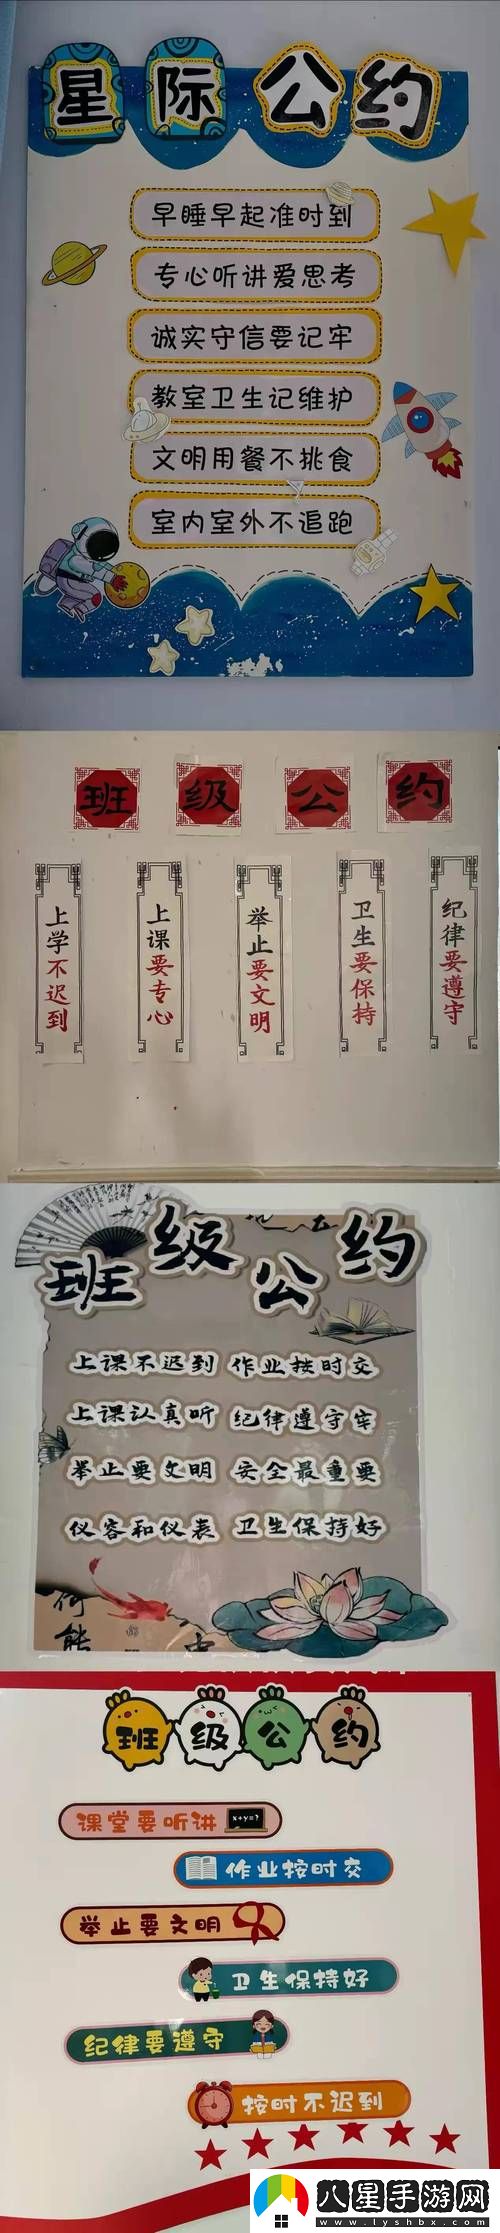 星际公约
早睡早起准时到
专心听讲爱思考
诚实守信要记牢
教室卫生记维护
文明用餐不挑食
室内室外不追跑
班级公约
上学不迟到
上课要专心
举止要文明
卫生要保持
纪律要遵守
班级公约
上课不迟到 作业按时交
上课认真听 纪律遵守牢
举止要文明 安全最重要
仪容和仪表 卫生保持好
何能
班级公约
课堂要听讲
x+y=?
作业按时交
举止要文明
卫生保持好
纪律要遵守
按时不迟到
八星手游网
www.lyshbx.com